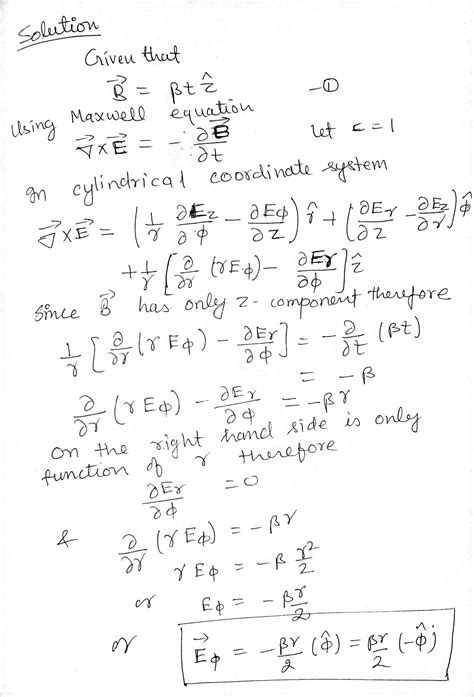 Solution
Given that
B⃗ = βt ẑ —①
Using Maxwell equation
∇⃗×E⃗ = -∂B⃗/∂t let c = 1
In cylindrical coordinate system
∇⃗×E⃗ = (1/r ∂Ez/∂φ - ∂Eφ/∂z) r̂ + (∂Er/∂z - ∂Ez/∂r) φ̂
+ 1/r [∂/∂r (rEφ) - ∂Er/∂φ] ẑ
Since B⃗ has only z-component therefore
1/r [∂/∂r (r Eφ) - ∂Er/∂φ] = -∂/∂t (βt)
= -β
∂/∂r (r Eφ) - ∂Er/∂φ = -βr
On the right hand side is only
function of r therefore
∂Er/∂φ = 0
& ∂/∂r (r Eφ) = -βr
r Eφ = -β r²/2
or Eφ = -βr/2
or E⃗φ = -βr/2 (φ̂) = βr/2 (-φ̂)